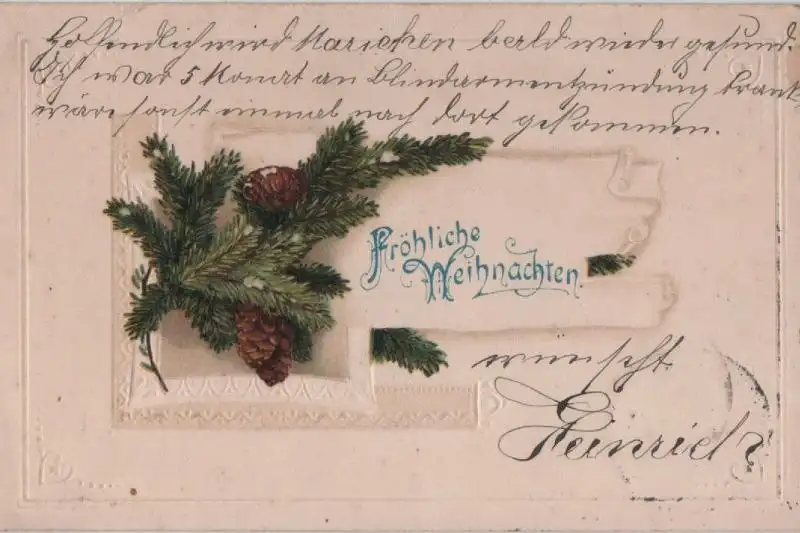 Hoffendlich wird Mariechen bald wieder gesund.
Ich war 5 Monat an Blindarmentzündung krank
wäre sonst einmal nach dort gekommen.
Fröhliche
Weihnachten.
wünscht
Heinrich